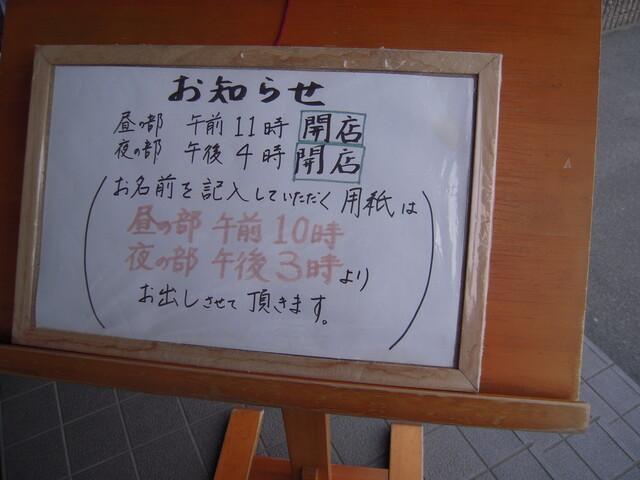 お知らせ
昼の部 午前 11時 開店
夜の部 午後 4時 開店
(お名前を記入していただく用紙は
昼の部 午前 10時
夜の部 午後 3時より
お出しさせて頂きます。)